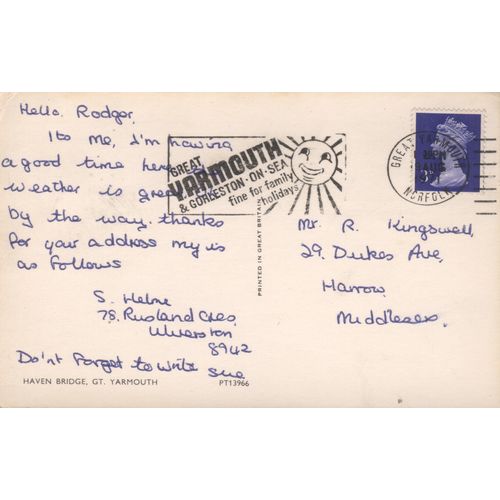 Hello, Rodger,
Its me, I'm having
a good time here, the
weather is great
by the way. thanks
for your address my is
as follows
S. Helme
78, Rusland Cres,
Ulverston
8942
Do'nt Forget to write sue
HAVEN BRIDGE, GT. YARMOUTH
PT13966
PRINTED IN GREAT BRITAIN
GREAT
YARMOUTH
& GORLESTON-ON-SEA
fine for family
holidays
GREAT YARMOUTH
PM
AUG
NORFOLK
3P
Mr. R. Kingswell,
29, Dukes Ave,
Harrow,
Middlesex.